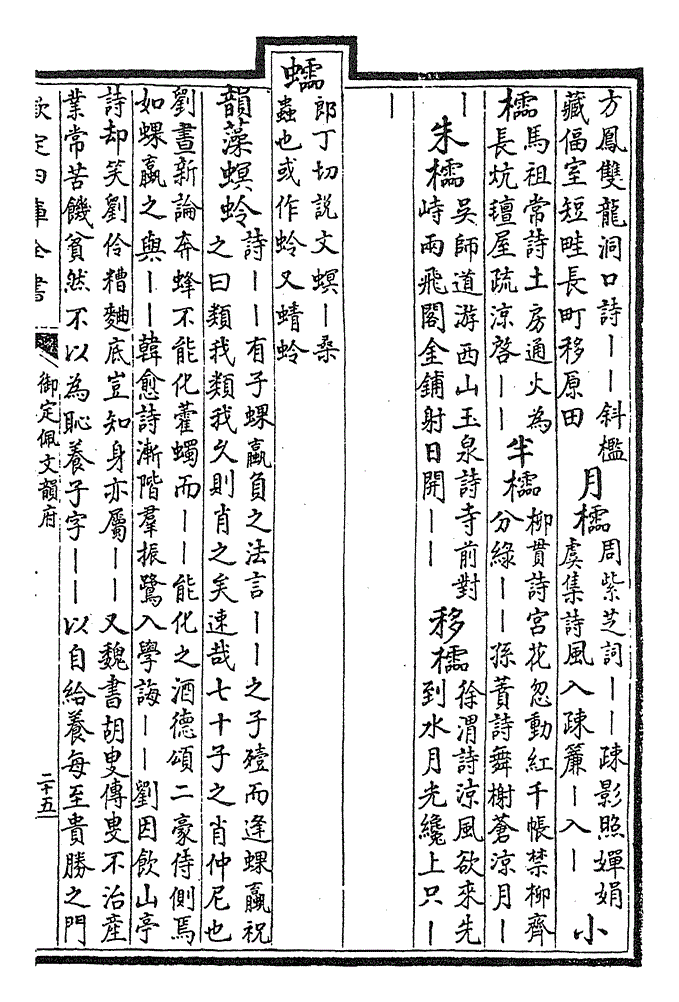 方鳳雙龍洞口詩｜｜斜檻
藏偪室短畦長町移原田
月檽
周紫芝詞｜｜疎影照嬋娟
虞集詩風入疎簾｜入｜
小
檽
馬祖常詩土房通火為
長炕㼊屋疏涼啓｜｜
半檽
柳貫詩宮花忽動紅千帳禁柳齊
分綠｜｜孫蕡詩舞榭蒼涼月｜
｜
朱檽
吳師道游西山玉泉詩寺前對
峙兩飛閣金鋪射日開｜｜
移檽
徐渭詩涼風欲來先
到水月光纔上只｜
｜
蠕
郎丁切說文螟｜桑
蟲也或作蛉又蜻蛉
韻藻螟蛉
詩｜｜有子蜾蠃負之法言｜｜之子殪而逢蜾蠃祝
之曰類我類我久則肖之矣速哉七十子之肖仲尼也
劉晝新論奔蜂不能化藿蠋而｜｜能化之酒德頌二豪侍側焉
如蜾蠃之與｜｜韓愈詩漸階羣振鷺入學誨｜｜劉因飲山亭
詩却笑劉伶糟麯底豈知身亦屬｜｜又魏書胡叟傳叟不治產
業常苦饑貧然不以為恥養子字｜｜以自給養每至貴勝之門
欽定四庫全書
御定佩文韻府
二十五